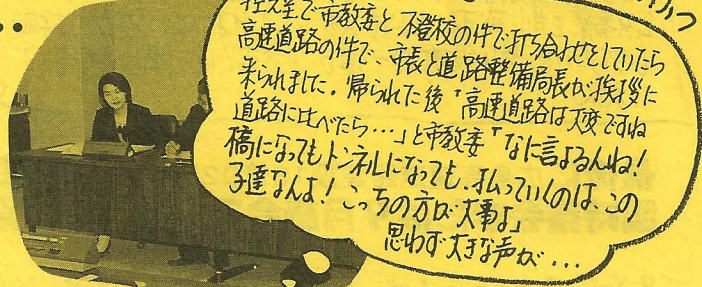 控え室で市教委と不登校の件で打ち合わせをしていたら
高速道路の件で、市長と道路整備局長が挨拶に
来られました。帰られた後「高速道路は大変ですね
道路に比べたら・・・」と市教委「なに言よるんね!
橋になってもトンネルになっても、払っていくのは、この
子達なんよ!こっちの方が大事よ」
思わず大きな声が...